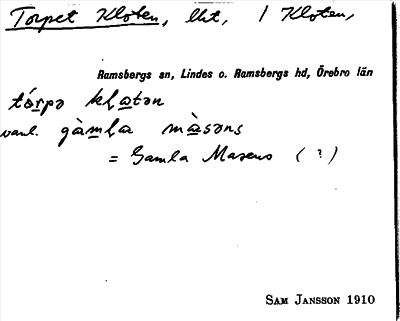 Torpet Kloten, lht, / Kloten,
Ramsbergs sn, Lindes o. Ramsbergs hd, Örebro län
tórpə kḷatən
vanl. gàmḷa màsəns
= Gamla Masens (?)
SAM JANSSON 1910